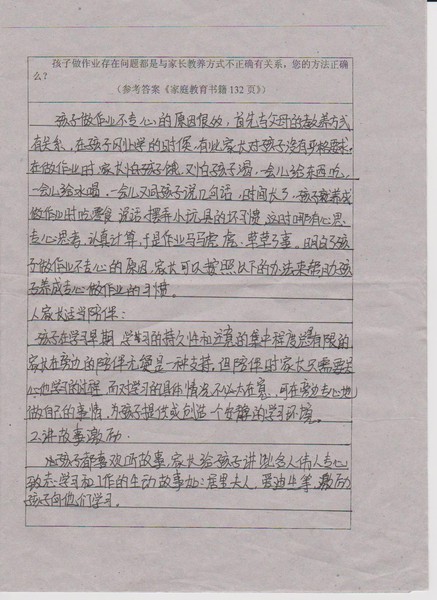 孩子做作业存在问题都是与家长教养方式不正确有关系，您的方法正确
么？
（参考答案《家庭教育书籍132页》）
孩子做作业不专心的原因很多，首先与父母的教养方式
有关系，在孩子刚上学的时候，有些家长对孩子没有严格要求，
在做作业时，家长怕孩子饿，又怕孩子渴，一会儿给东西吃，
一会儿给水喝，一会儿又同孩子说几句话，时间长了，孩子就养成
做作业时吃零食、说话、摆弄小玩具的坏习惯，这时哪有心思
专心思考，认真计算，于是作业马马虎虎、草草了事。明白了孩
子做作业不专心的原因，家长可以按照以下的办法来帮助孩
子养成专心做作业的习惯。
家长适当陪伴：
孩子在学习早期，学习的持久性和注意的集中程度是有限的，
家长在旁边的陪伴无疑是一种支持，但陪伴时家长只需要关
心他学习的过程，而对学习的具体情况不必太在意，可在旁边专心地
做自己的事情，为孩子提供或创造一个安静的学习环境。
2.讲故事激励．
小孩子都喜欢听故事，家长给孩子讲些名人伟人专心
致志学习和工作的生动故事如：居里夫人，爱迪生等，激励
孩子向他们学习。